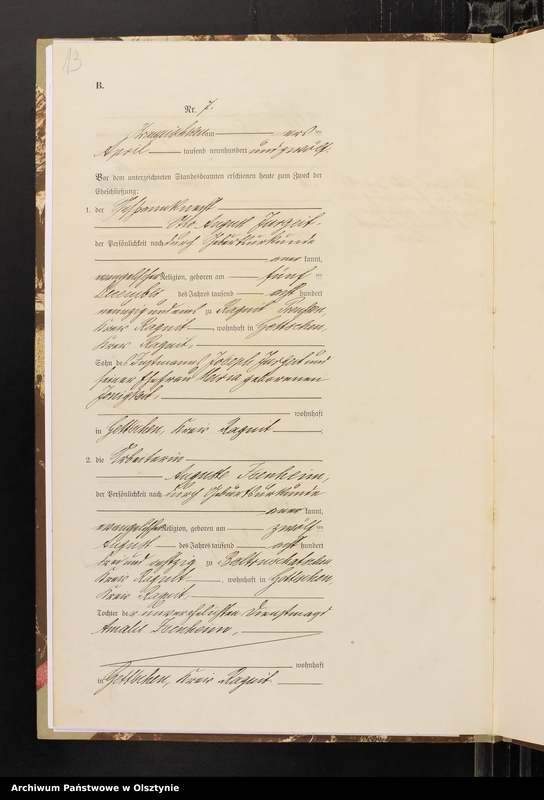 13
B.
Nr. 7.
am
April tausend neunhundert und zwölf.
Vor dem unterzeichneten Standesbeamten erschienen heute zum Zweck der
Eheschließung:
1. der Gespannknecht
Otto August Jurgeit
der Persönlichkeit nach durch Geburtsurkunde
aner kannt,
evangelischer Religion, geboren am fünf ten
Dezember des Jahres tausend acht hundert
neunzig und zu Ragnit Preußen,
Kreis Ragnit, wohnhaft in Gettschen,
Kreis Ragnit,
Sohn des Instmanns Joseph Jurgeit und
seiner Ehefrau Maria geborenen
wohnhaft
in Gettschen, Kreis Ragnit.
2. die Arbeiterin
Auguste Isenheim,
der Persönlichkeit nach durch Geburtsurkunde
aner kannt,
evangelischer Religion, geboren am zwölf ten
August des Jahres tausend acht hundert
und achtzig zu
Kreis Ragnit, wohnhaft in Gettschen,
Kreis Ragnit,
Tochter der unverehelichten Dienstmagd
Amalie Isenheim,
wohnhaft
in Gettschen, Kreis Ragnit.
Archiwum Państwowe w Olsztynie